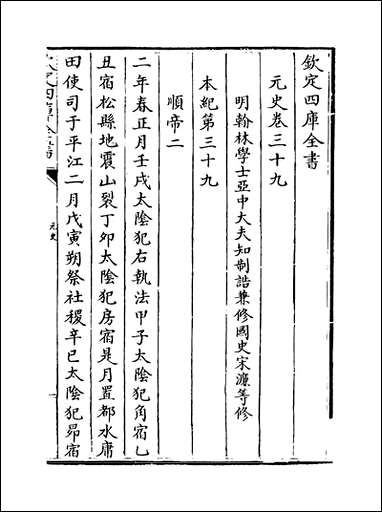 欽定四庫全書
元史卷三十九
明翰林學士亞中大夫知制誥兼修國史宋濂等修
本紀第三十九
順帝二
二年春正月壬戌太陰犯右執法甲子太陰犯角宿乙
丑宿松縣地震山裂丁夘太陰犯房宿是月置都水庸
田使司于平江二月戊寅朔祭社稷辛巳太陰犯昴宿
元史